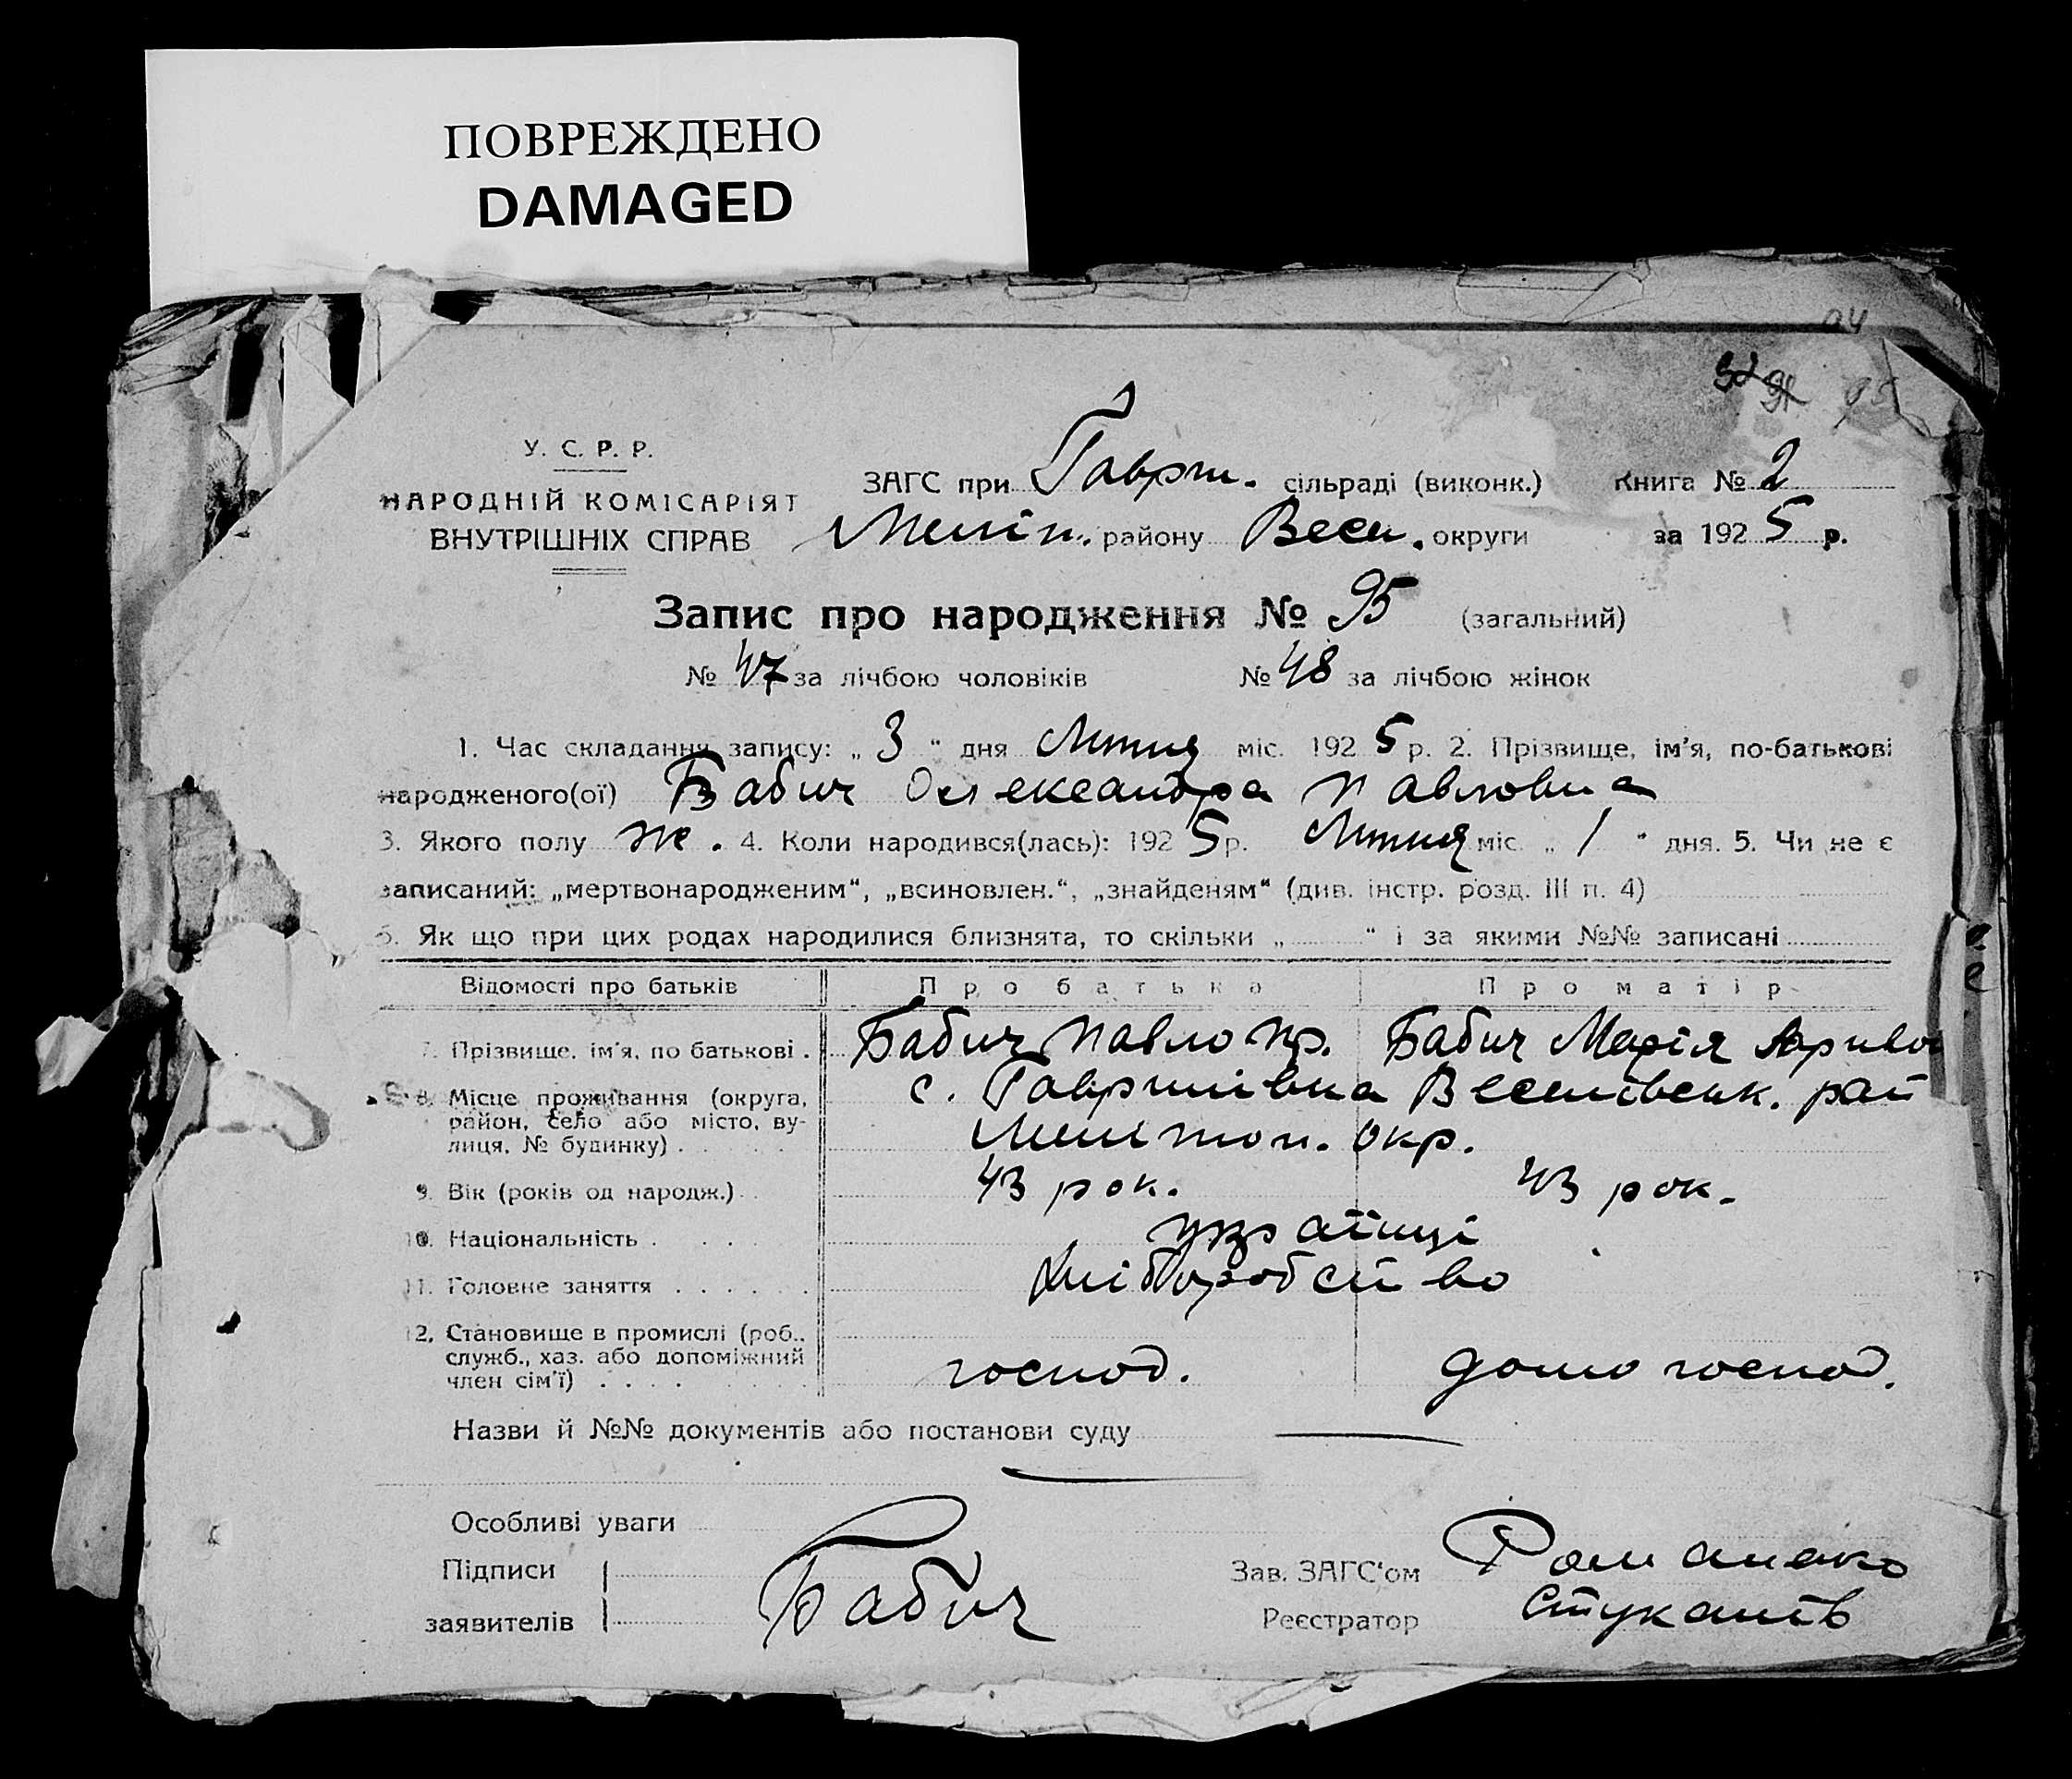 ПОВРЕЖДЕНО
DAMAGED
94
95
У. С. Р. Р.
НАРОДНІЙ КОМІСАРІЯТ
ВНУТРІШНІХ СПРАВ
ЗАГС при Гаврил. сільраді (виконк.) Книга № 2
Меліт. району Весел. округи за 1925 р.
Запис про народження № 95 (загальний)
№ 47 за лічбою чоловіків № 48 за лічбою жінок
1. Час складання запису: „ 3 “ дня Липня міс. 1925 р. 2. Прізвище, ім’я, по-батькові
народженого(ої) Бабич Олександра Павловна
3. Якого полу ж. 4. Коли народився(лась): 1925 р. Липня міс. „ 1 “ дня. 5. Чи не є
записаний: „мертвонародженим“, „всиновлен.“, „знайденям“ (див. інстр. розд. III п. 4)
6. Як що при цих родах народилися близнята, то скільки „ “ і за якими №№ записані
Відомості про батьків Про батька Про матір
7. Прізвище, ім’я, по батькові . Бабич Павло Пр. Бабич Марія
8. Місце проживання (округа, с. Гаврилівка Веселівськ. рай
район, село або місто, ву-
лиця, № будинку) . Мелітоп. окр.
9. Вік (років од народж.) . 43 рок. 43 рок.
10. Національність . українці
11. Головне заняття . Хліборобство
12. Становище в промислі (роб.,
служб., хаз. або допоміжний
член сім’ї) . господ. домогоспод.
Назви й №№ документів або постанови суду
Особливі уваги
Підписи
заявителів Бабич
Зав. ЗАГС‘ом Романенко
Реєстратор Стуканів